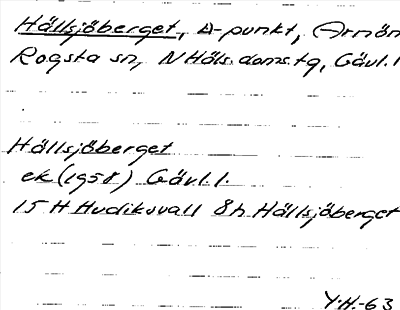 Hällsjöberget, Δ-punkt, Arnön
Rogsta sn, N Häls. doms. tg, Gävl. l
Hällsjöberget
ek (1958) Gävl. l.
15 H Hudiksvall 8h Hällsjöberget
Y.H.-63